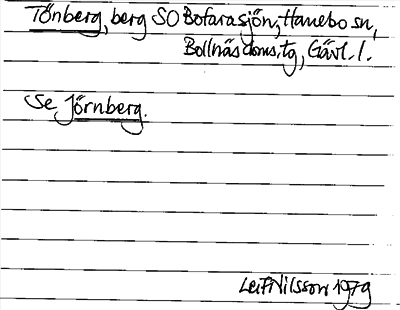 Tönberg, berg SO Bofarasjön, Hanebo sn,
Bollnäs doms.tg, Gävl. l.
Se Jörnberg.
Leif Nilsson 1979